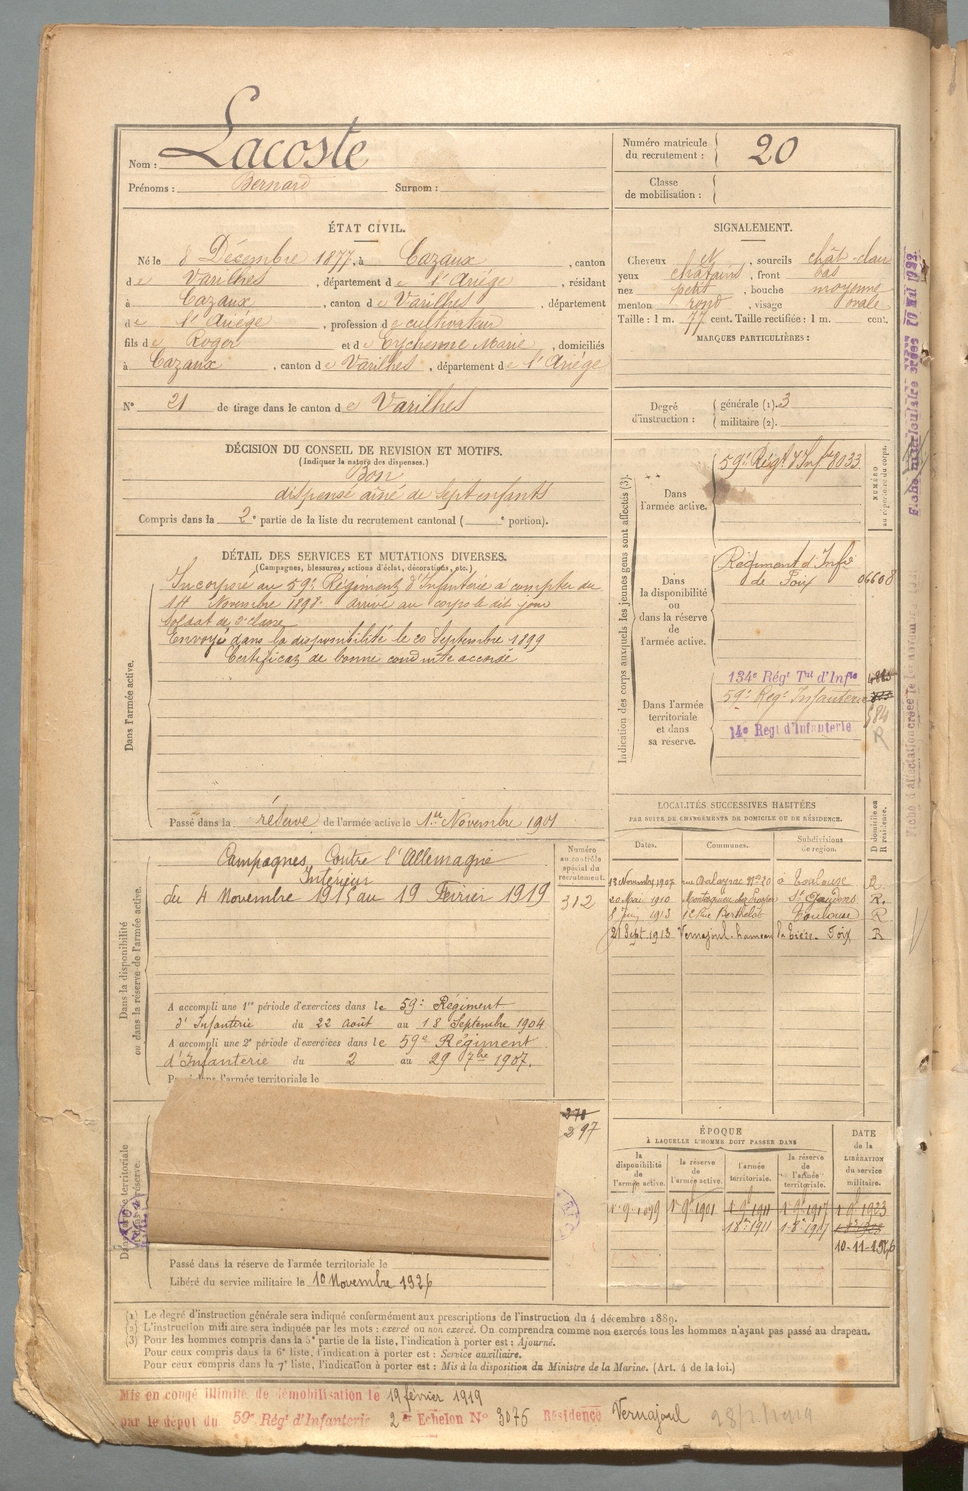 Nom : Lacoste
Prénoms : Bernard Surnom :
Numéro matricule du recrutement : 20
Classe de mobilisation :
ÉTAT CIVIL.
Né le 8 Décembre 1877, à Cazaux, canton
d e Varilhes, département d e l'Ariège, résidant
à Cazaux, canton d e Varilhes, département
d e l'Ariège, profession d e cultivateur
fils d e Roger et d e Eychenne Marie, domiciliés
à Cazaux, canton d e Varilhes, département d e l'Ariège
N° 21 de tirage dans le canton d e Varilhes
SIGNALEMENT.
Cheveux et, sourcils chât-clair
yeux chatains, front bas
nez petit, bouche moyenne
menton rond, visage ovale
Taille : 1 m. 77 cent. Taille rectifiée : 1 m. cent.
MARQUES PARTICULIÈRES :
Degré d'instruction : générale (1). 3
militaire (2).
DÉCISION DU CONSEIL DE REVISION ET MOTIFS.
(Indiquer la nature des dispenses.)
Bon
dispensé aîné de sept enfants
Compris dans la 2e partie de la liste du recrutement cantonal ( e portion).
DÉTAIL DES SERVICES ET MUTATIONS DIVERSES.
(Campagnes, blessures, actions d'éclat, décorations, etc.)
Dans l'armée active.
Incorporé au 59e Régiment d'Infanterie à compter du
14 Novembre 1898 arrivé au corps le dit jour
Soldat de 2e classe
Envoyé dans la disponibilité le 20 Septembre 1899
Certificat de bonne conduite accordé
Passé dans la réserve de l'armée active le 1er Novembre 1901
Indication des corps auxquels les jeunes gens sont affectés (3).
NUMÉRO au répertoire du corps.
Dans l'armée active.
59e Régt d'Infie 8033
Dans la disponibilité ou dans la réserve de l'armée active.
Régiment d'Infie
de Foix 06608
Dans l'armée territoriale et dans sa réserve.
134e Régt Tal d'Infie
59e Régt Infanterie
14e Régt d'Infanterie
R
Dans la disponibilité ou dans la réserve de l'armée active.
Numéro au contrôle spécial du recrutement.
312
Campagnes Contre l'Allemagne
Intérieur
du 4 Novembre 1915 au 19 Février 1919
A accompli une 1re période d'exercices dans le 59e Régiment
d'Infanterie du 22 août au 18 Septembre 1904
A accompli une 2e période d'exercices dans le 59e Régiment
d'Infanterie du 2 au 29 7bre 1907.
l'armée territoriale le
LOCALITÉS SUCCESSIVES HABITÉES
PAR SUITE DE CHANGEMENTS DE DOMICILE OU DE RÉSIDENCE.
Dates. Communes. Subdivisions de région. D domicile ou R résidence.
13 Novembre 1907 rue N° 20 à Toulouse R.
20 Mai 1910 St Gaudens R.
8 Juin 1913 Rue Berthelot Toulouse R
21 Sept 1913 Vernajoul hameau Foix R
270
297
Dans l'armée territoriale réserve.
ÉPOQUE
À LAQUELLE L'HOMME DOIT PASSER DANS
DATE de la LIBÉRATION du service militaire.
la disponibilité de l'armée active. la réserve de l'armée active. l'armée territoriale. la réserve de l'armée territoriale.
1er 9bre 1901
1er 8bre 1911 1er 8bre 1917
10-11-1926
Passé dans la réserve de l'armée territoriale le
Libéré du service militaire le 10 Novembre 1926
(1) Le degré d'instruction générale sera indiqué conformément aux prescriptions de l'instruction du 4 décembre 1889.
(2) L'instruction militaire sera indiquée par les mots : exercé ou non exercé. On comprendra comme non exercés tous les hommes n'ayant pas passé au drapeau.
(3) Pour les hommes compris dans la 5e partie de la liste, l'indication à porter est : Ajourné.
Pour ceux compris dans la 6e liste, l'indication à porter est : Service auxiliaire.
Pour ceux compris dans la 7e liste, l'indication à porter est : Mis à la disposition du Ministre de la Marine. (Art. 4 de la loi.)
Mis en congé illimité de démobilisation le 19 février 1919
par le dépôt du 59e Régt d'Infanterie 2e Echelon N° 3076 Résidence Vernajoul